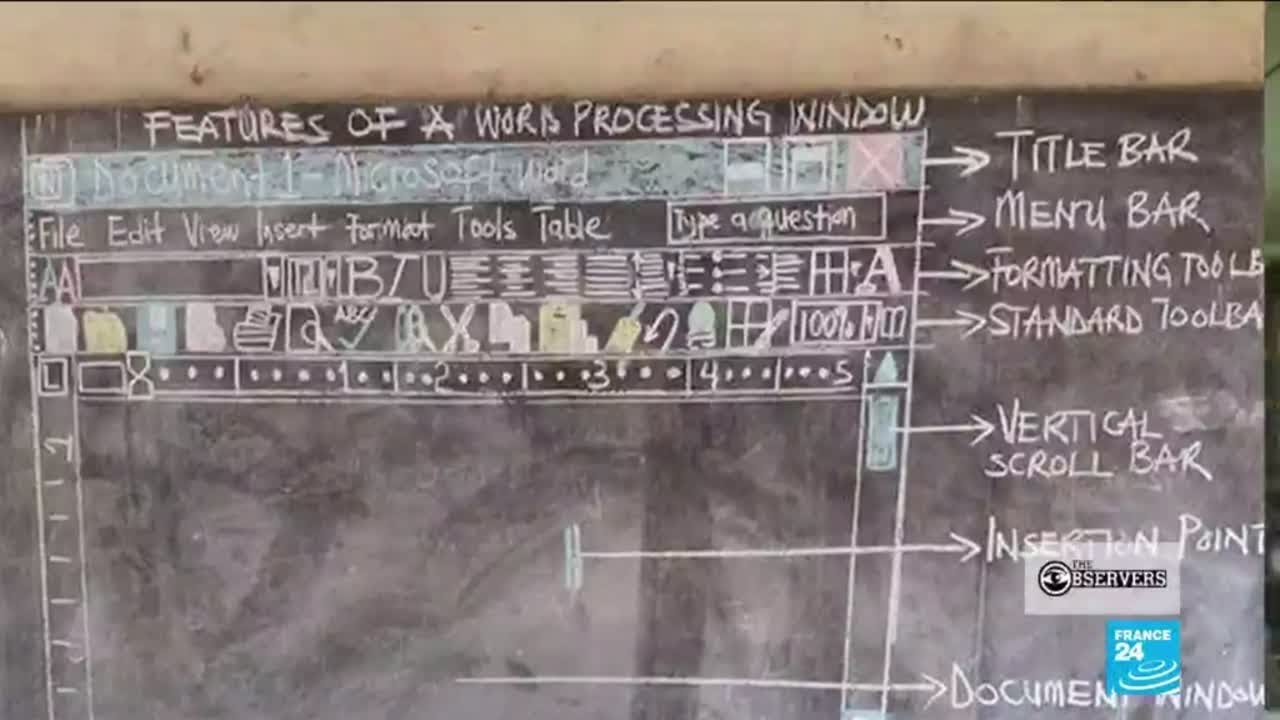 FEATURES OF A WORD PROCESSING WINDOW
W Document 1 - Microsoft Word
TITLE BAR
File Edit View Insert Format Tools Table Type a question
MENU BAR
AA 12 B I U A
FORMATTING TOOLB
ABC 100%
STANDARD TOOLBA
L 1 2 3 4 5
VERTICAL
SCROLL BAR
1
INSERTION POINT
THE
OBSERVERS
FRANCE
24
DOCUMENT WINDOW